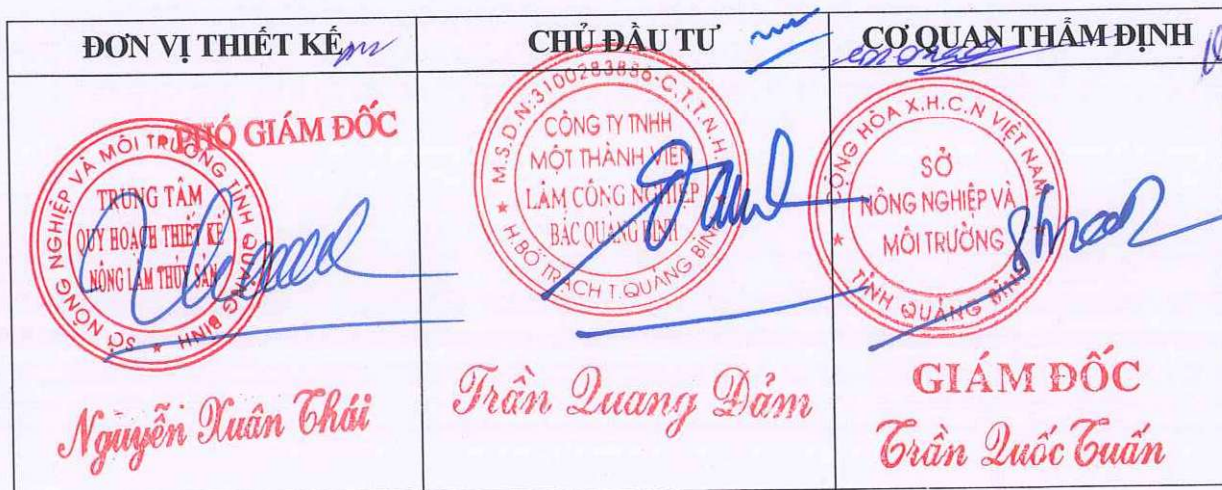 ĐƠN VỊ THIẾT KẾ
PHÓ GIÁM ĐỐC
SỞ NÔNG NGHIỆP VÀ MÔI TRƯỜNG TỈNH QUẢNG BÌNH
TRUNG TÂM
QUY HOẠCH THIẾT KẾ
NÔNG LÂM THỦY SẢN
Nguyễn Xuân Thái
CHỦ ĐẦU TƯ
M.S.D.N:3100283836-C.T.T.N.H.
CÔNG TY TNHH
MỘT THÀNH VIÊN
LÂM CÔNG NGHIỆP
BẮC QUẢNG BÌNH
H.BỐ TRẠCH T.QUẢNG BÌNH
Trần Quang Đảm
CƠ QUAN THẨM ĐỊNH
CỘNG HÒA X.H.C.N VIỆT NAM
SỞ
NÔNG NGHIỆP VÀ
MÔI TRƯỜNG
TỈNH QUẢNG BÌNH
GIÁM ĐỐC
Trần Quốc Tuấn